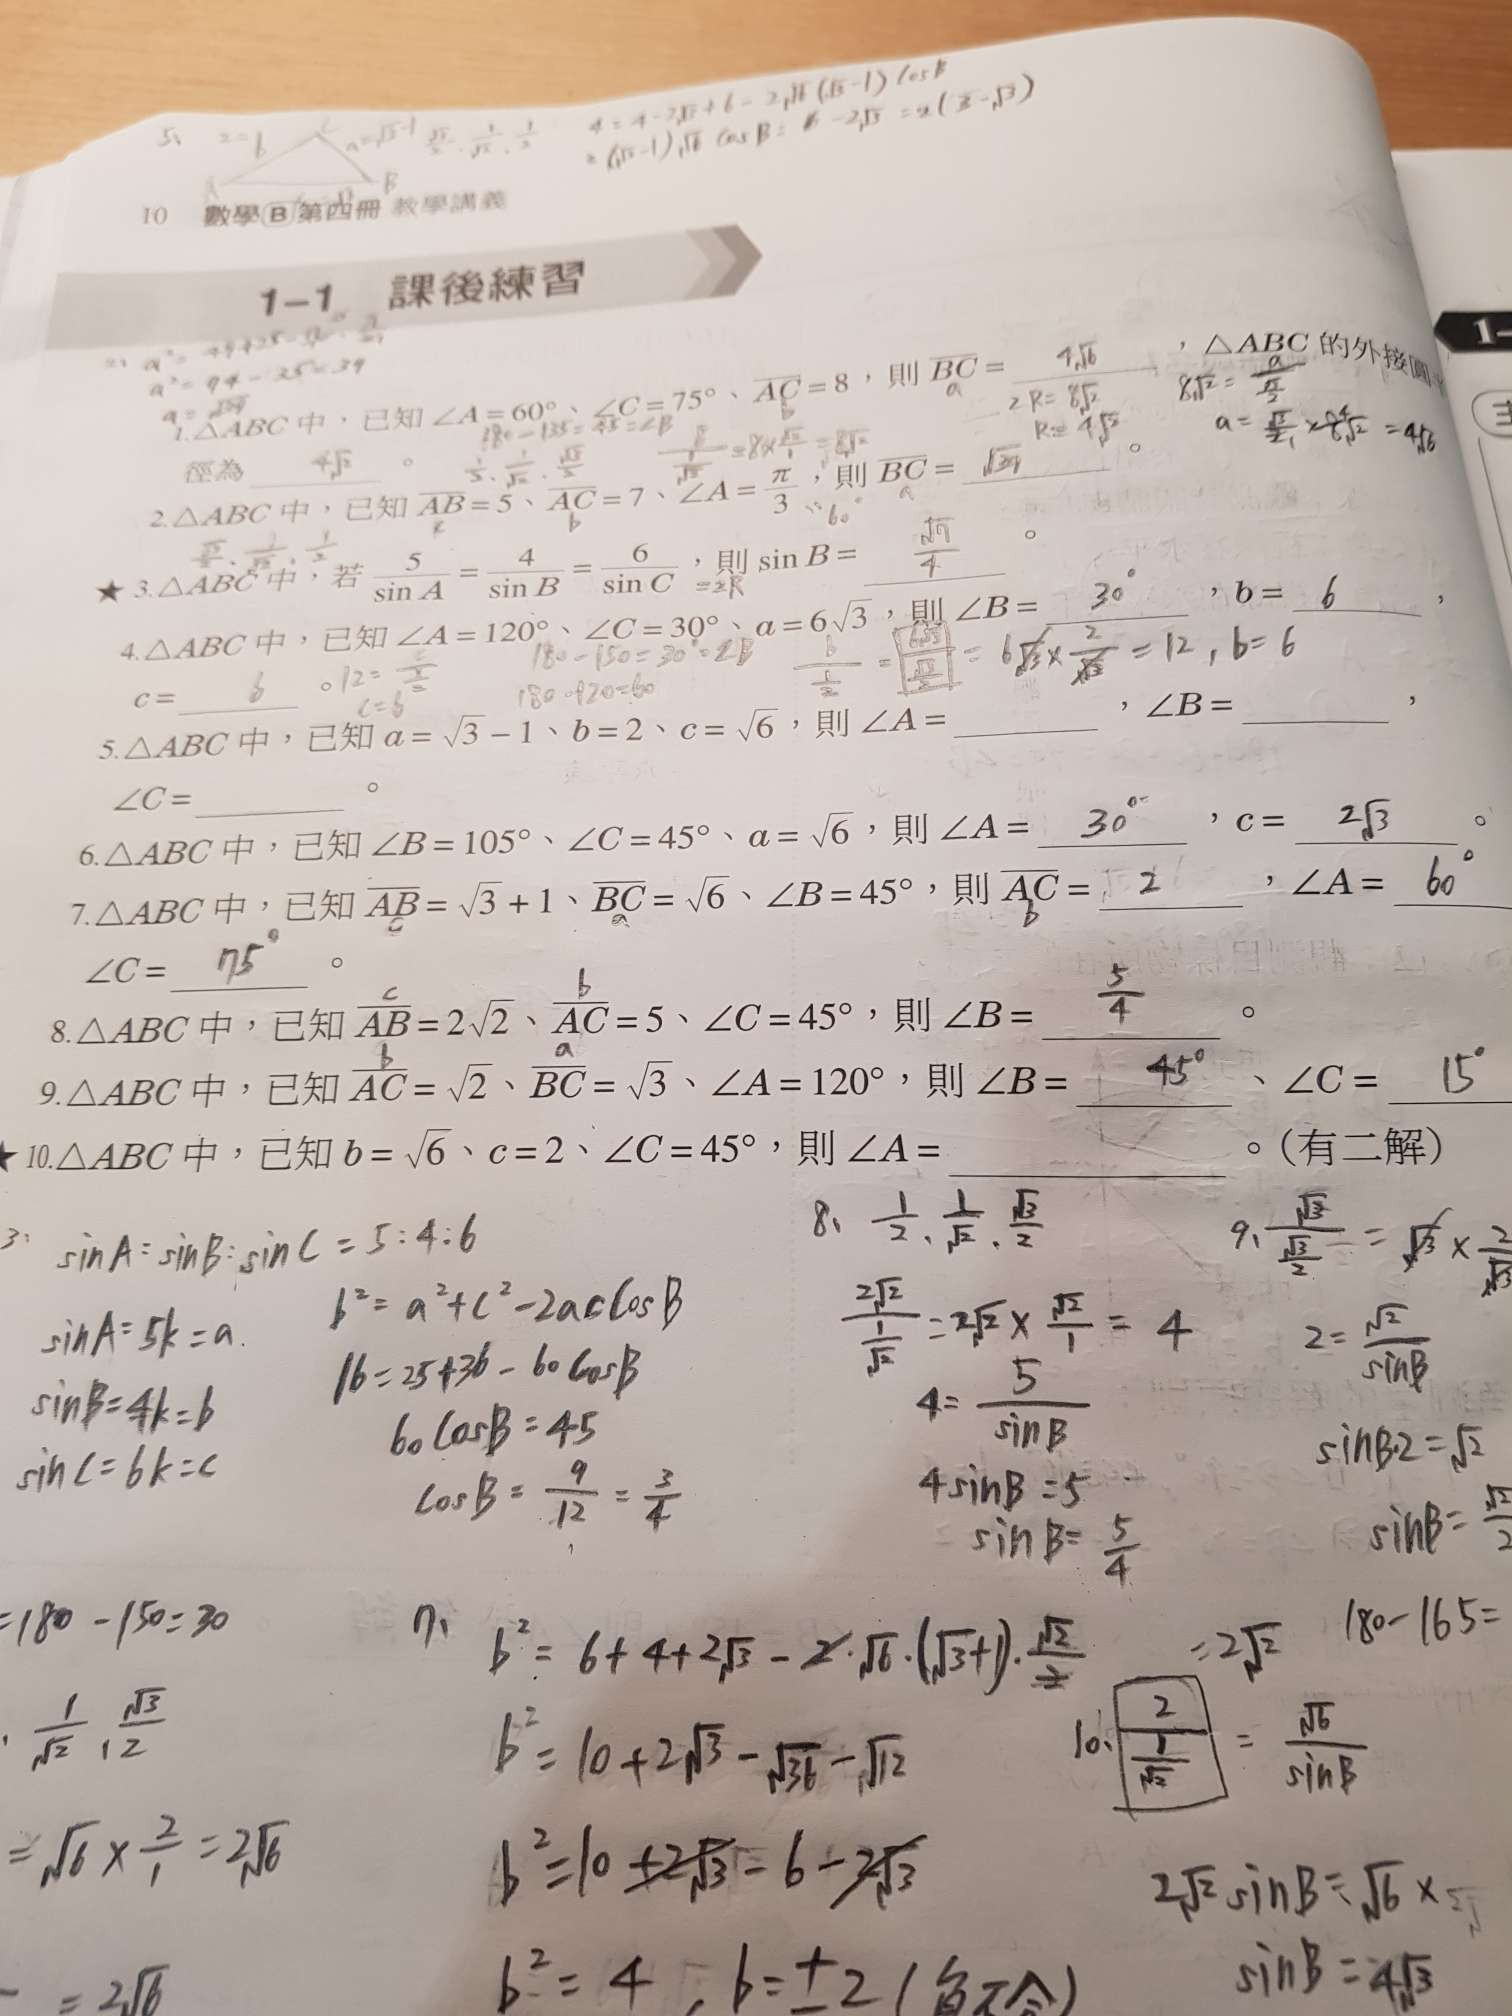 5、 2=b
C
a=√3-1 √3/2、1/√2、1/2
4 = 4-2√3+6-2√6(√3-1)cosB
A B
10 數學B第四冊 教學講義
1-1 課後練習
a²=
a²=
a=√39
1.△ABC 中,已知∠A=60°、∠C=75°、AC=8,則BC= 4√6 ,△ABC 的外接圓
a
b
2R=8√2
R=4√2
8√2= a/(√3/2)
180-135=45=∠B
=8×√2/1=8√2
徑為 4√2 。
2.△ABC 中,已知AB=5、AC=7、∠A=π/3,則BC= √39 。
c b 60° a
★ 3.△ABC 中,若 5/sin A = 4/sin B = 6/sin C,則 sin B= √7/4 。
=2R
4.△ABC 中,已知∠A=120°、∠C=30°、a=6√3,則∠B= 30° ,b= 6 ,
180-150=30°=∠B
b/(1/2) = 6√3/(√3/2) = 6√3×2/√3=12,b=6
c= 6 。
c=6
180-120=60
5.△ABC 中,已知 a=√3-1、b=2、c=√6,則∠A= ,∠B= ,
∠C= 。
6.△ABC 中,已知∠B=105°、∠C=45°、a=√6,則∠A= 30° ,c= 2√3 。
7.△ABC 中,已知AB=√3+1、BC=√6、∠B=45°,則AC= 2 ,∠A= 60°
c a b
∠C= 75° 。
c b
8.△ABC 中,已知AB=2√2、AC=5、∠C=45°,則∠B= 5/4 。
b a
9.△ABC 中,已知AC=√2、BC=√3、∠A=120°,則∠B= 45° 、∠C= 15°
★ 10.△ABC 中,已知 b=√6、c=2、∠C=45°,則∠A= 。(有二解)
3、 sinA:sinB:sinC=5:4:6
sinA=5k=a
sinB=4k=b
sinC=6k=c
b²=a²+c²-2accosB
16=25+36-60cosB
60cosB=45
cosB=9/12=3/4
8、 1/2、1/√2、√3/2
2√2/(1/√2)=2√2×√2/1=4
4=5/sinB
4sinB=5
sinB=5/4
9、 √3/(√3/2)=√3×2/√3
2=√2/sinB
sinB·2=√2
sinB=√2/2
180-165=
=180-150=30
1/√2,√3/2
=√6×2/1=2√6
=2√6
7、 b²=6+4+2√3-2·√6·(√3+1)·√2/2
b²=10+2√3-√36-√12
b²=10+2√3-6-2√3
b²=4,b=±2(負不合)
=2√2
10、 2/(1/√2)=√6/sinB
2√2sinB=√6×
sinB=4√3
1-